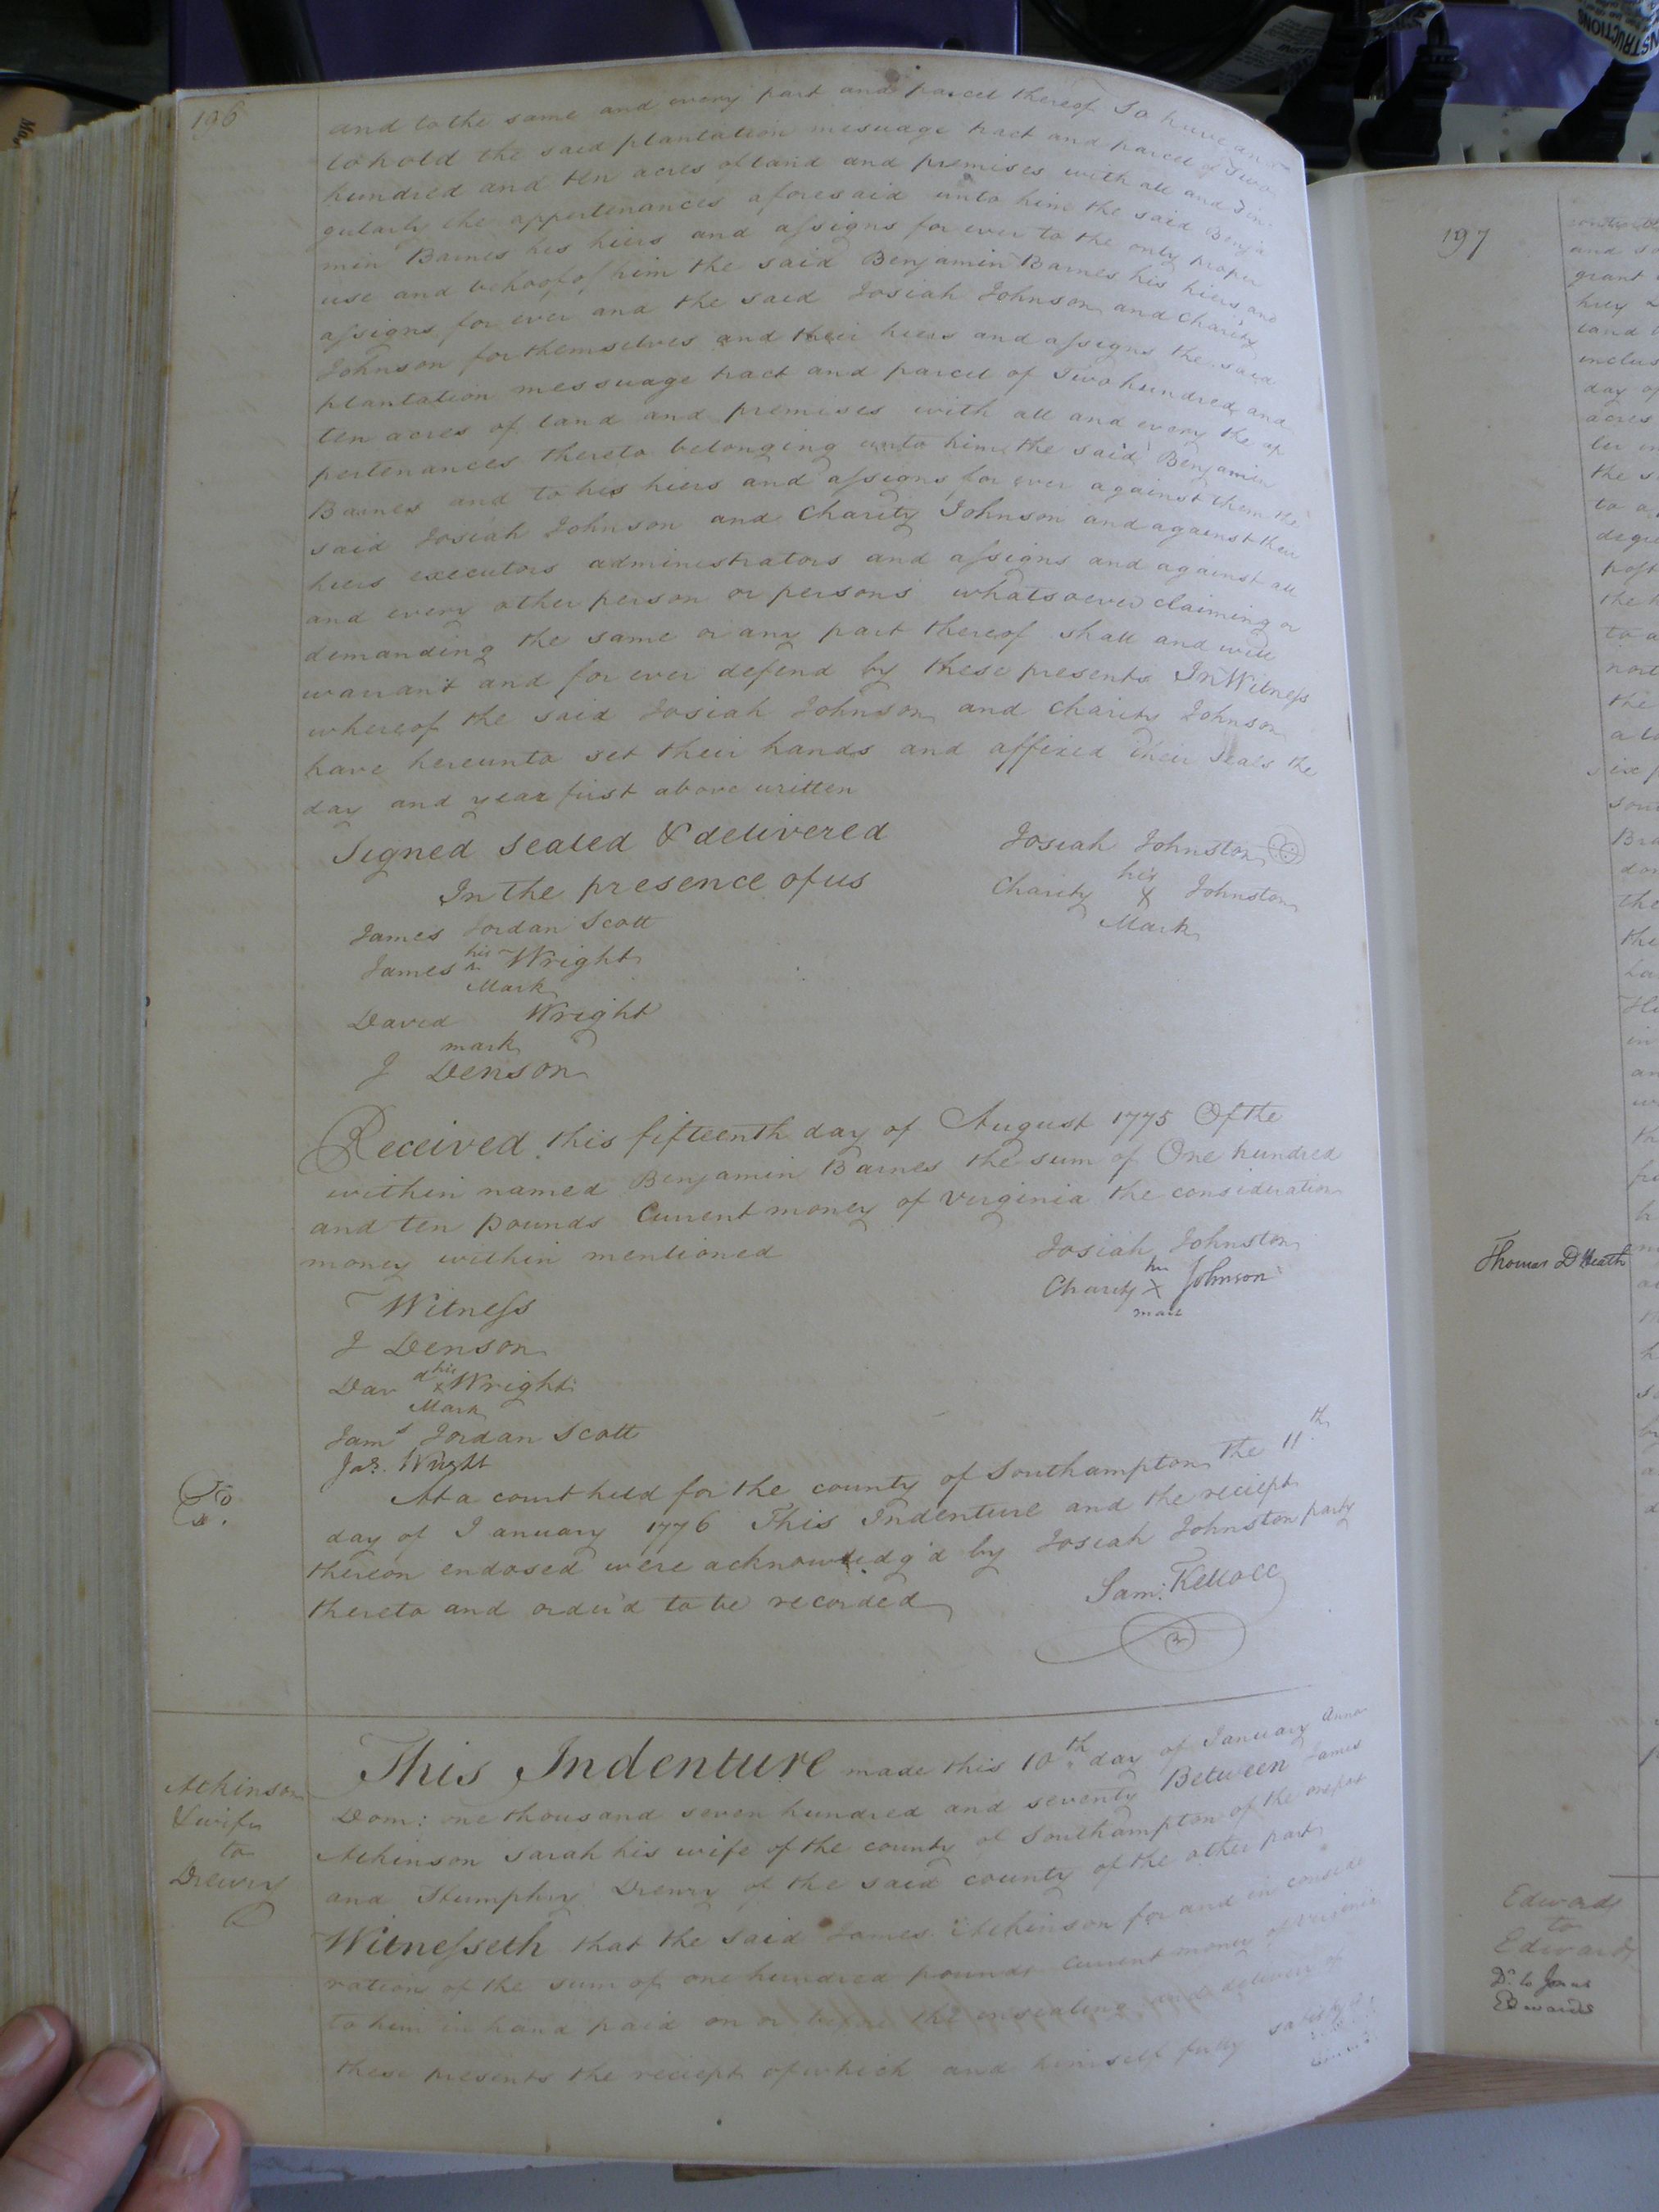 196
and to the same and every part and parcel thereof To have and
to hold the said plantation mesuage tract and parcel of Two
hundred and ten acres of land and premises with all and sin
gularly the appertenances aforesaid unto him the said Benja
min Barnes his hiers and assigns for ever to the only proper
use and behoof of him the said Benjamin Barnes his hiers and
assigns for ever and the said Josiah Johnson and Charity
Johnson for themselves and their hiers and assigns the said
plantation messuage tract and parcel of Two hundred and
ten acres of land and premises with all and every the ap
pertenances thereto belonging unto him the said Benjamin
Barnes and to his hiers and assigns for ever against them the
said Josiah Johnson and Charity Johnson and against their
hiers executors administrators and assigns and against all
and every other person or persons whatsoever claiming or
demanding the same or any part thereof shall and will
warrant and for ever defend by these presents In Witness
whereof the said Josiah Johnson and Charity Johnson
have hereunto set their hands and affixed their Seals the
day and year first above written
Signed Sealed & delivered
In the presence of us
Josiah Johnston
her
Charity X Johnston
Mark
James Jordan Scott
his
James Wright
Mark
David Wright
mark
J Denson
Received this fifteenth day of August 1775 Of the
within named Benjamin Barnes the sum of One hundred
and ten pounds Current money of Virginia the consideration
money within mentioned
Josiah Johnston
her
Charity X Johnson
mark
Witness
J Denson
his
Davd x Wright
Mark
Jams Jordan Scott
Jas. Wright
At a court held for the county of Southampton the 11th
day of January 1776 This Indenture and the reciept
thereon endosed were acknowledg'd by Josiah Johnston party
thereto and order'd to be recorded
Sam: Kello CC
Atkinson
& wife
to
Drewry
This Indenture made this 10th day of January Anno
Dom: one thousand seven hundred and seventy Between James
Atkinson Sarah his wife of the county of Southampton of the one part
and Humphry Drewry of the said county of the other part
Witnesseth that the said James Atkinson for and in conside
ration of the sum of one hundred pounds Current money of Virginia
to him in hand paid on or before the ensealing and delivery of
these presents the reciept of which and himself fully satisfied
197
Thomas D Heath
Edwards
to
Edwards
Do to Jonas
Edwards